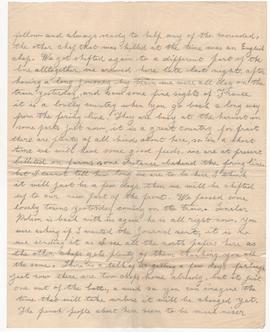 fellow and always ready to help any of the wounded,
the other chap that was killed at the time was an English
chap. We got shifted again to a different part of the
line altogether we arrived here late last night after
having a long journey by train we were all day on the
train yesterday, and saw some fine sights of France
it is a lovely country when you go back a long way
from the firing line. They are busy at the harvest in
some parts just now, it is a great country for fruit
there are plenty of all kinds about here, so in a short
time we will have some good feeds, we are at present
billeted on farms some distance behind the firing line
but I cannot tell how long we are to be here I think
it will just be a few days, then we will be shifted
up to our new part of the front. We passed some
lovely towns yesterday coming on the train.
is back with us again he is all right now. You
were asking if I wanted the Journal sent, it is no
use sending it as I see all the north papers here as
the other chaps get plenty of them thanking you all
the same. There is a talk of getting a few days
just now there are two away home already, but it is only
one out of the batt, a week so you can imagine the
time that will take unless it will be changed yet.
The french people about here seem to be much nicer